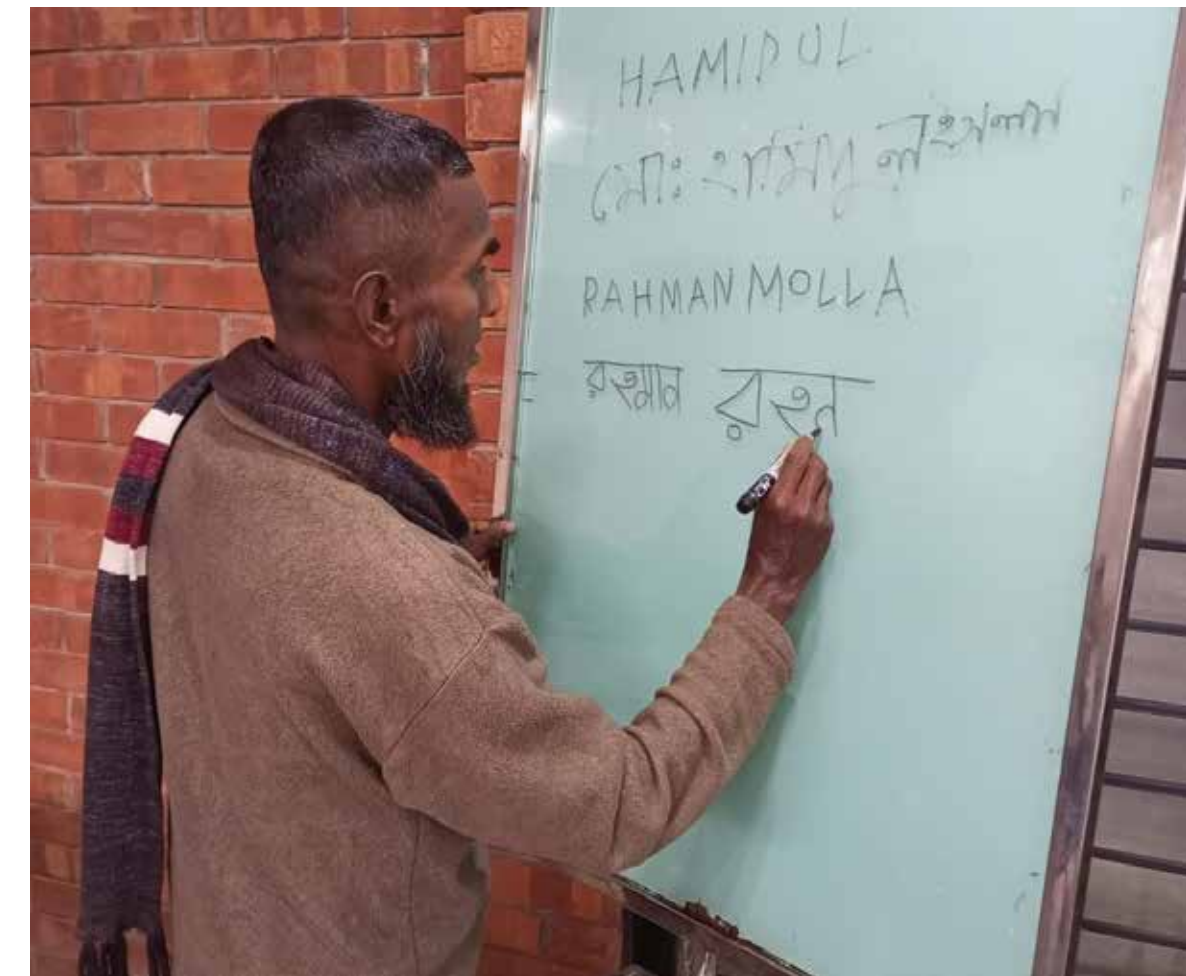 HAMIDUL
মোঃ হামিদুল
RAHMAN MOLLA
রহমান রহ